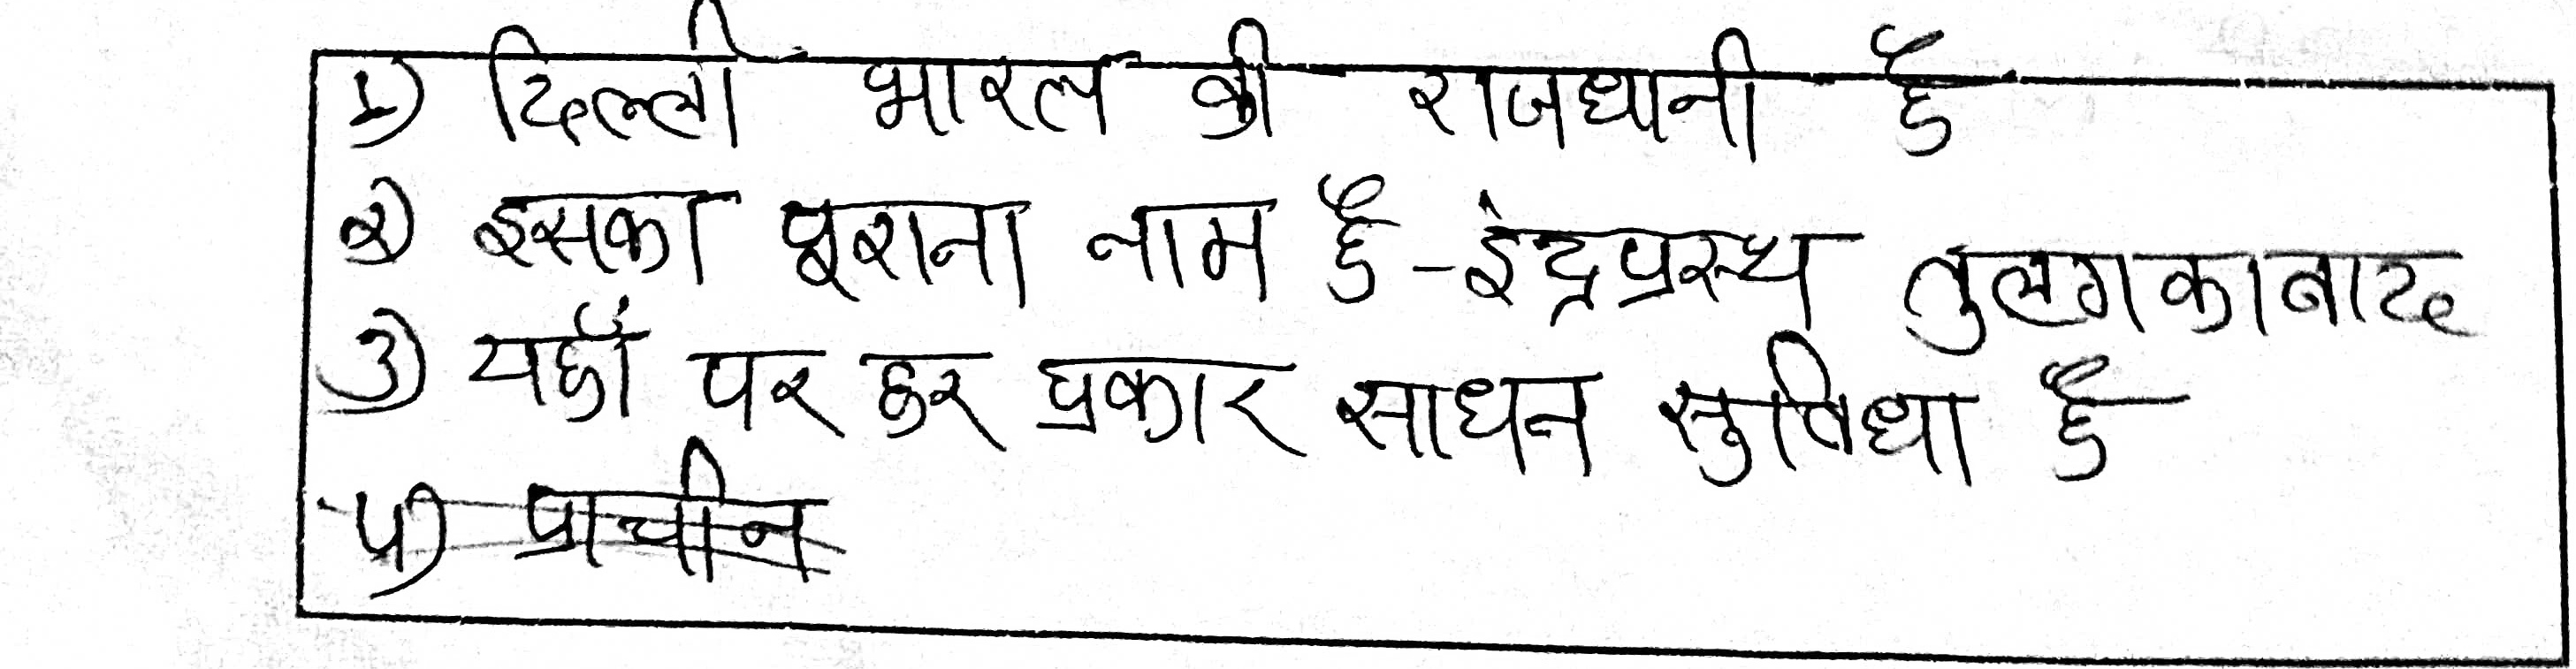 १) दिल्ली भारत की राजधानी है
२) इसका पूराना नाम है - इंद्रप्रस्थ तुलगकाबाद
3) यहाँ पर हर प्रकार साधन सुविधा है
५) प्राचीन